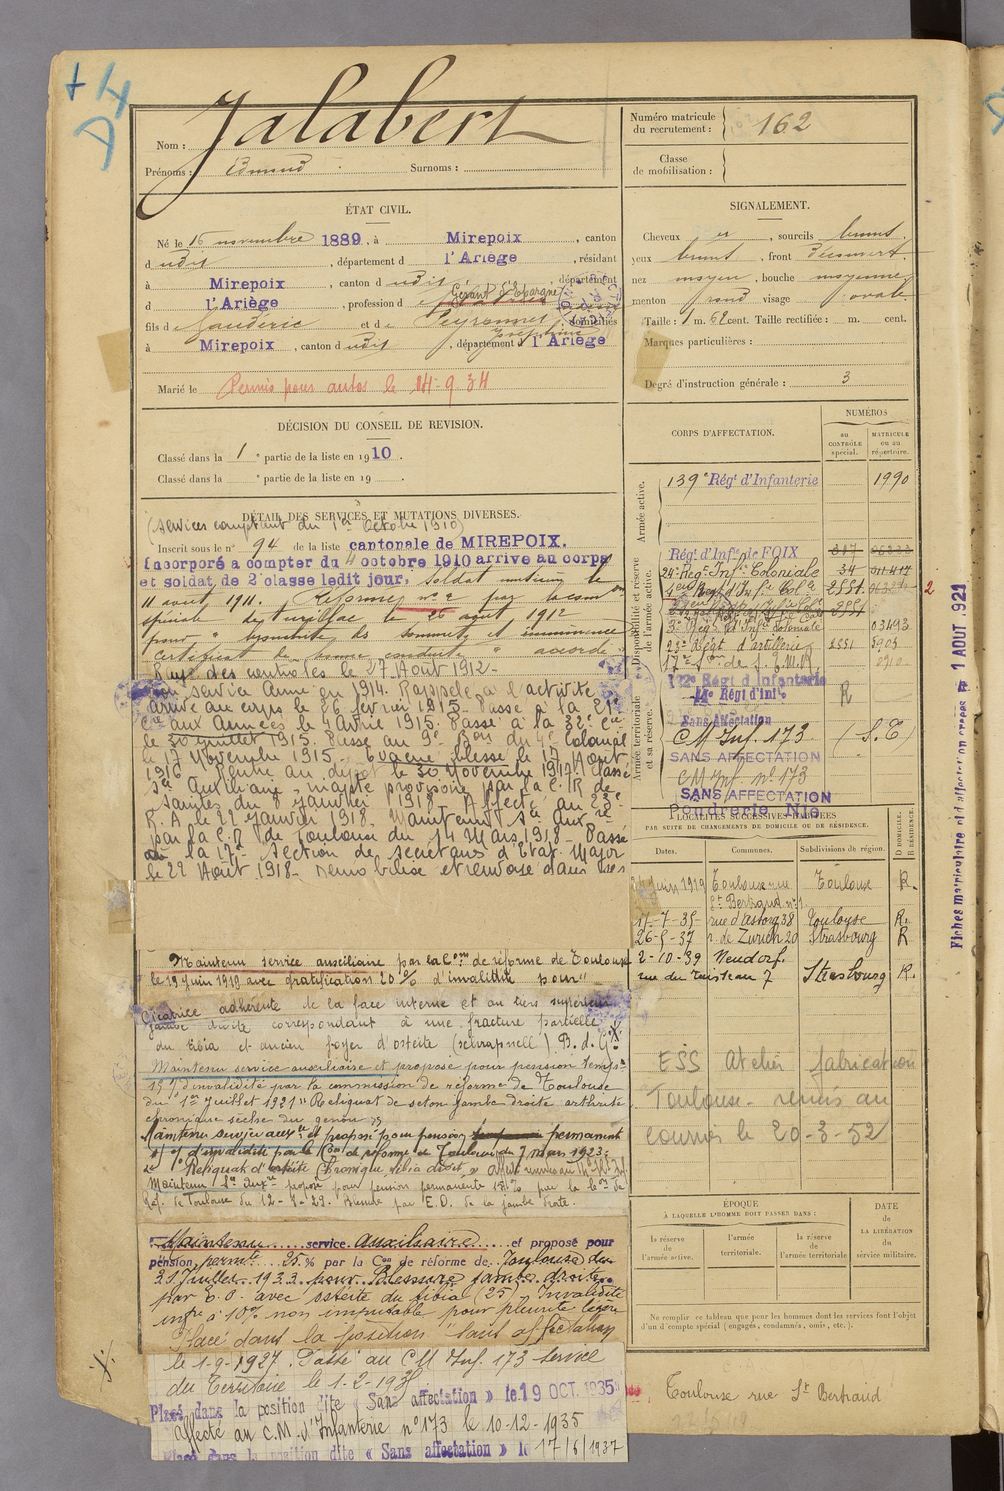 + D4
Nom : Jalabert
Prénoms : Surnoms :
Numéro matricule du recrutement : 162
Classe de mobilisation :
ÉTAT CIVIL.
Né le 16 novembre 1889, à Mirepoix, canton
d udit, département d l'Ariège, résidant
à Mirepoix, canton d udit, département
d l'Ariège, profession d Gérant d'Epargne
fils de Gauderic et de Peyronnet Joséphine domiciliés
à Mirepoix, canton d udit, département d l'Ariège
Marié le
Permis pour autos le 14-9-34
SIGNALEMENT.
Cheveux , sourcils bruns.
yeux bruns, front découvert.
nez moyen, bouche moyenne
menton rond visage ovale
Taille : 1 m. 62 cent. Taille rectifiée : m. cent.
Marques particulières :
Degré d'instruction générale : 3
DÉCISION DU CONSEIL DE REVISION.
Classé dans la 1e partie de la liste en 1910.
Classé dans la e partie de la liste en 19 .
DÉTAIL DES SERVICES ET MUTATIONS DIVERSES.
(Services comptent du 1er Octobre 1910)
Inscrit sous le n° 94 de la liste cantonale de MIREPOIX.
Incorporé a compter du 4 octobre 1910 arrivé au corps
et soldat de 2e classe ledit jour, Soldat musicien le
11 août 1911. Réformé n° 2 par la com on
spéciale de Aurillac le 26 août 1912
pour « bronchite des sommets et imminence
Certificat de bonne conduite « accordé »
Rayé des controles le 27 Août 1912-
service Armé en 1914. Rappelé à l'activité
Arrivé au corps le 26 février 1915. Passé à la 21e
Cie aux Armées le 4 Avril 1915. Passé à la 32e Cie
le 30 juillet 1915. Passé au 9e Bon du 4e Colonial
le 17 Novembre 1915. Evacué blessé le 17 Août
1916. Rentré au dépôt le 30 Novembre 1917. Classé
Sce Auxiliaire, inapte provisoire par la C.R de
Saintes du 8 Janvier 1918. Affecté au 23e
R.A le 22 Janvier 1918. Maintenu Sce Auxre
par la C.R de Toulouse du 14 Mars 1918. Passé
à la 17e Section de secrétaires d'Etat-Major
le 22 Août 1918. Démobilisé et renvoyé dans ses
Maintenu service auxiliaire par la Con de réforme de Toulouse
le 19 juin 1919 avec gratification 20 % d'invalidité pour "
Cicatrice adhérente de la face interne et au tiers supérieur
jambe droite correspondant à une fracture partielle
du tibia et ancien foyer d'ostéite (schrapnell) B. d. G.
Maintenu service auxiliaire et proposé pour pension temp re
15 % d'invalidité par la commission de réforme de Toulouse
du 1er Juillet 1921 " Reliquat de séton jambe droite arthrite
chronique sèche du genou »
Maintenu service auxre et proposé pour pension permanent
% d'invalidité par la Con de réforme de Toulouse du 7 mars 1923 :
Reliquat d'ostéite chronique tibia droit »
Maintenu Sce Auxre proposé pour pension permanente 15 % par la Con de
Réf. de Toulouse du 12-7-23. Blessé par E.O. de la jambe droite.
Maintenu service auxiliaire et proposé pour
pension perm 25 % par la Con de réforme de Toulouse du
21 Juillet 1933 pour Blessure jambe droite
par E.O. avec ostéite du tibia (25) Invalidité
infre à 10 % non imputable pour pleurite légère
Placé dans la position "Sans affectation
le 1-9-1927. Passé au C M Inf. 173 service
du Territoire le 1-2-193
Placé dans la position dite « Sans affectation » le 19 OCT. 1935
affecté au C.M. d'Infanterie n° 173 le 10-12-1935
Placé dans la position dite « Sans affectation » le 17/6/1937
CORPS D'AFFECTATION.
NUMÉROS
au CONTRÔLE spécial.
MATRICULE ou au répertoire.
Armée active.
139e Régt d'Infanterie 1990
Disponibilité et réserve de l'armée active.
Régt d'Infie de FOIX
24e Régt Infie Coloniale 34
Régt d'Infie Colle 2551
3e Régt d'Infie coloniale 03493
23e Régt d'artillerie 2551 5905
17e Son de S.E.M.R 2910
Armée territoriale et sa réserve.
Régt d'Infanterie
Régt d'Infie R
Sans Affectation
C M Inf. 173 (S.T)
SANS AFFECTATION
C M Inf. n° 173
SANS AFFECTATION
Poudrerie Nle
LOCALITÉS SUCCESSIVES HABITÉES
PAR SUITE DE CHANGEMENTS DE DOMICILE OU DE RÉSIDENCE.
Dates. Communes. Subdivisions de région. D DOMICILE. R RÉSIDENCE.
Juin 1919 Toulouse rue St Bertrand n° 1 Toulouse R.
17-7-35- rue d'Astorg 38 Toulouse R.
26-5-37 r. de Zurich 20 Strasbourg R
2-10-39 Neudorf.
rue du ruisseau 7 Strasbourg R.
ESS Atelier fabrication
Toulouse - remis au
courrier le 20-3-52
ÉPOQUE
À LAQUELLE L'HOMME DOIT PASSER DANS :
DATE de LA LIBÉRATION du service militaire.
la réserve de l'armée active.
l'armée territoriale.
la réserve de l'armée territoriale
Ne remplir ce tableau que pour les hommes dont les services font l'objet
d'un d'compte spécial (engagés, condamnés, omis, etc.).
Toulouse rue St Bertrand
1 AOUT 1921
2